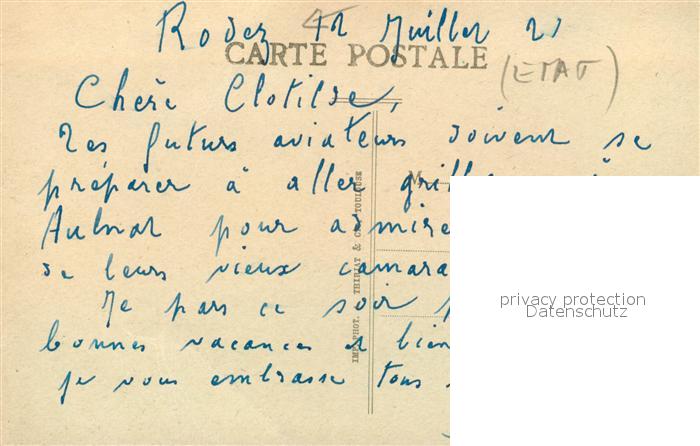 Rodez 12 Juillet 21
CARTE POSTALE
(ETAT)
Chère Clotilde,
Les futurs aviateurs doivent se
préparer à aller à
Aulnat pour admire
de leurs vieux camara
Je pars ce soir
bonnes vacances et bien
je vous embrasse tous
IMP. PHOT. THIRIAT & Cie TOULOUSE
privacy protection
Datenschutz